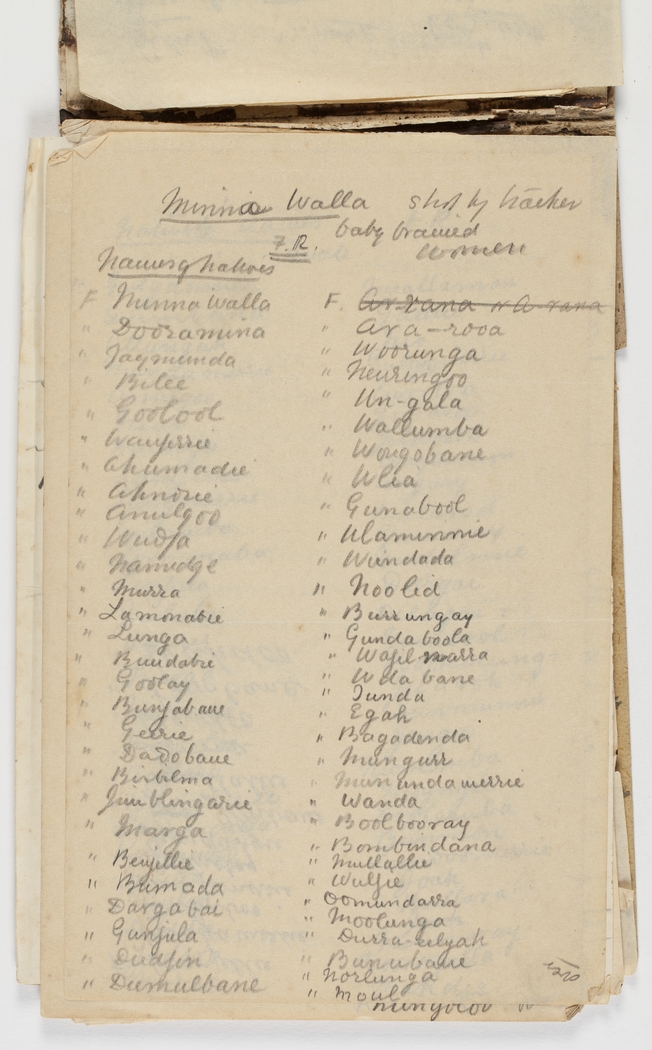 Minnie Walla shot by tracker
baby brained
7. R. women
Names of Natives
F Minna Walla
" Dooramina
" Jaymunda
" Bilee
" Goolool
" Waujerrie
" Ahumadie
" Ahnosie
" Anulgoo
" Wudja
" Namidge
" Murra
" Lamonabie
" Lunga
" Bundabie
" Goolay
" Bunjabane
" Gerrie
" Dadobane
" Birbilma
" Jimblingarie
" Marga
" Benjillie
" Bumada
" Dargabai
" Gunjula
" Dudjin
" Dumulbane
F. Ar-rana or A-rana
" Ara-rooa
" Woorunga
" Neuringoo
" Un-gala
" Wallumba
" Wongobane
" Wlia
" Gunabool
" Ulaminnie
" Wundada
" Noolid
" Burrungay
" Gundaboola
" Wajil warra
" Wdabane
" Junda
" Egah
" Bagadenda
" Mungurr
" Munundamerrie
" Wanda
" Boolbooray
" Bombindana
" Mullallie
" Wuljie
" Oomundarra
" Moolunga
" Durra-eelyah
" Bunubane
" Norlunga
" Moul